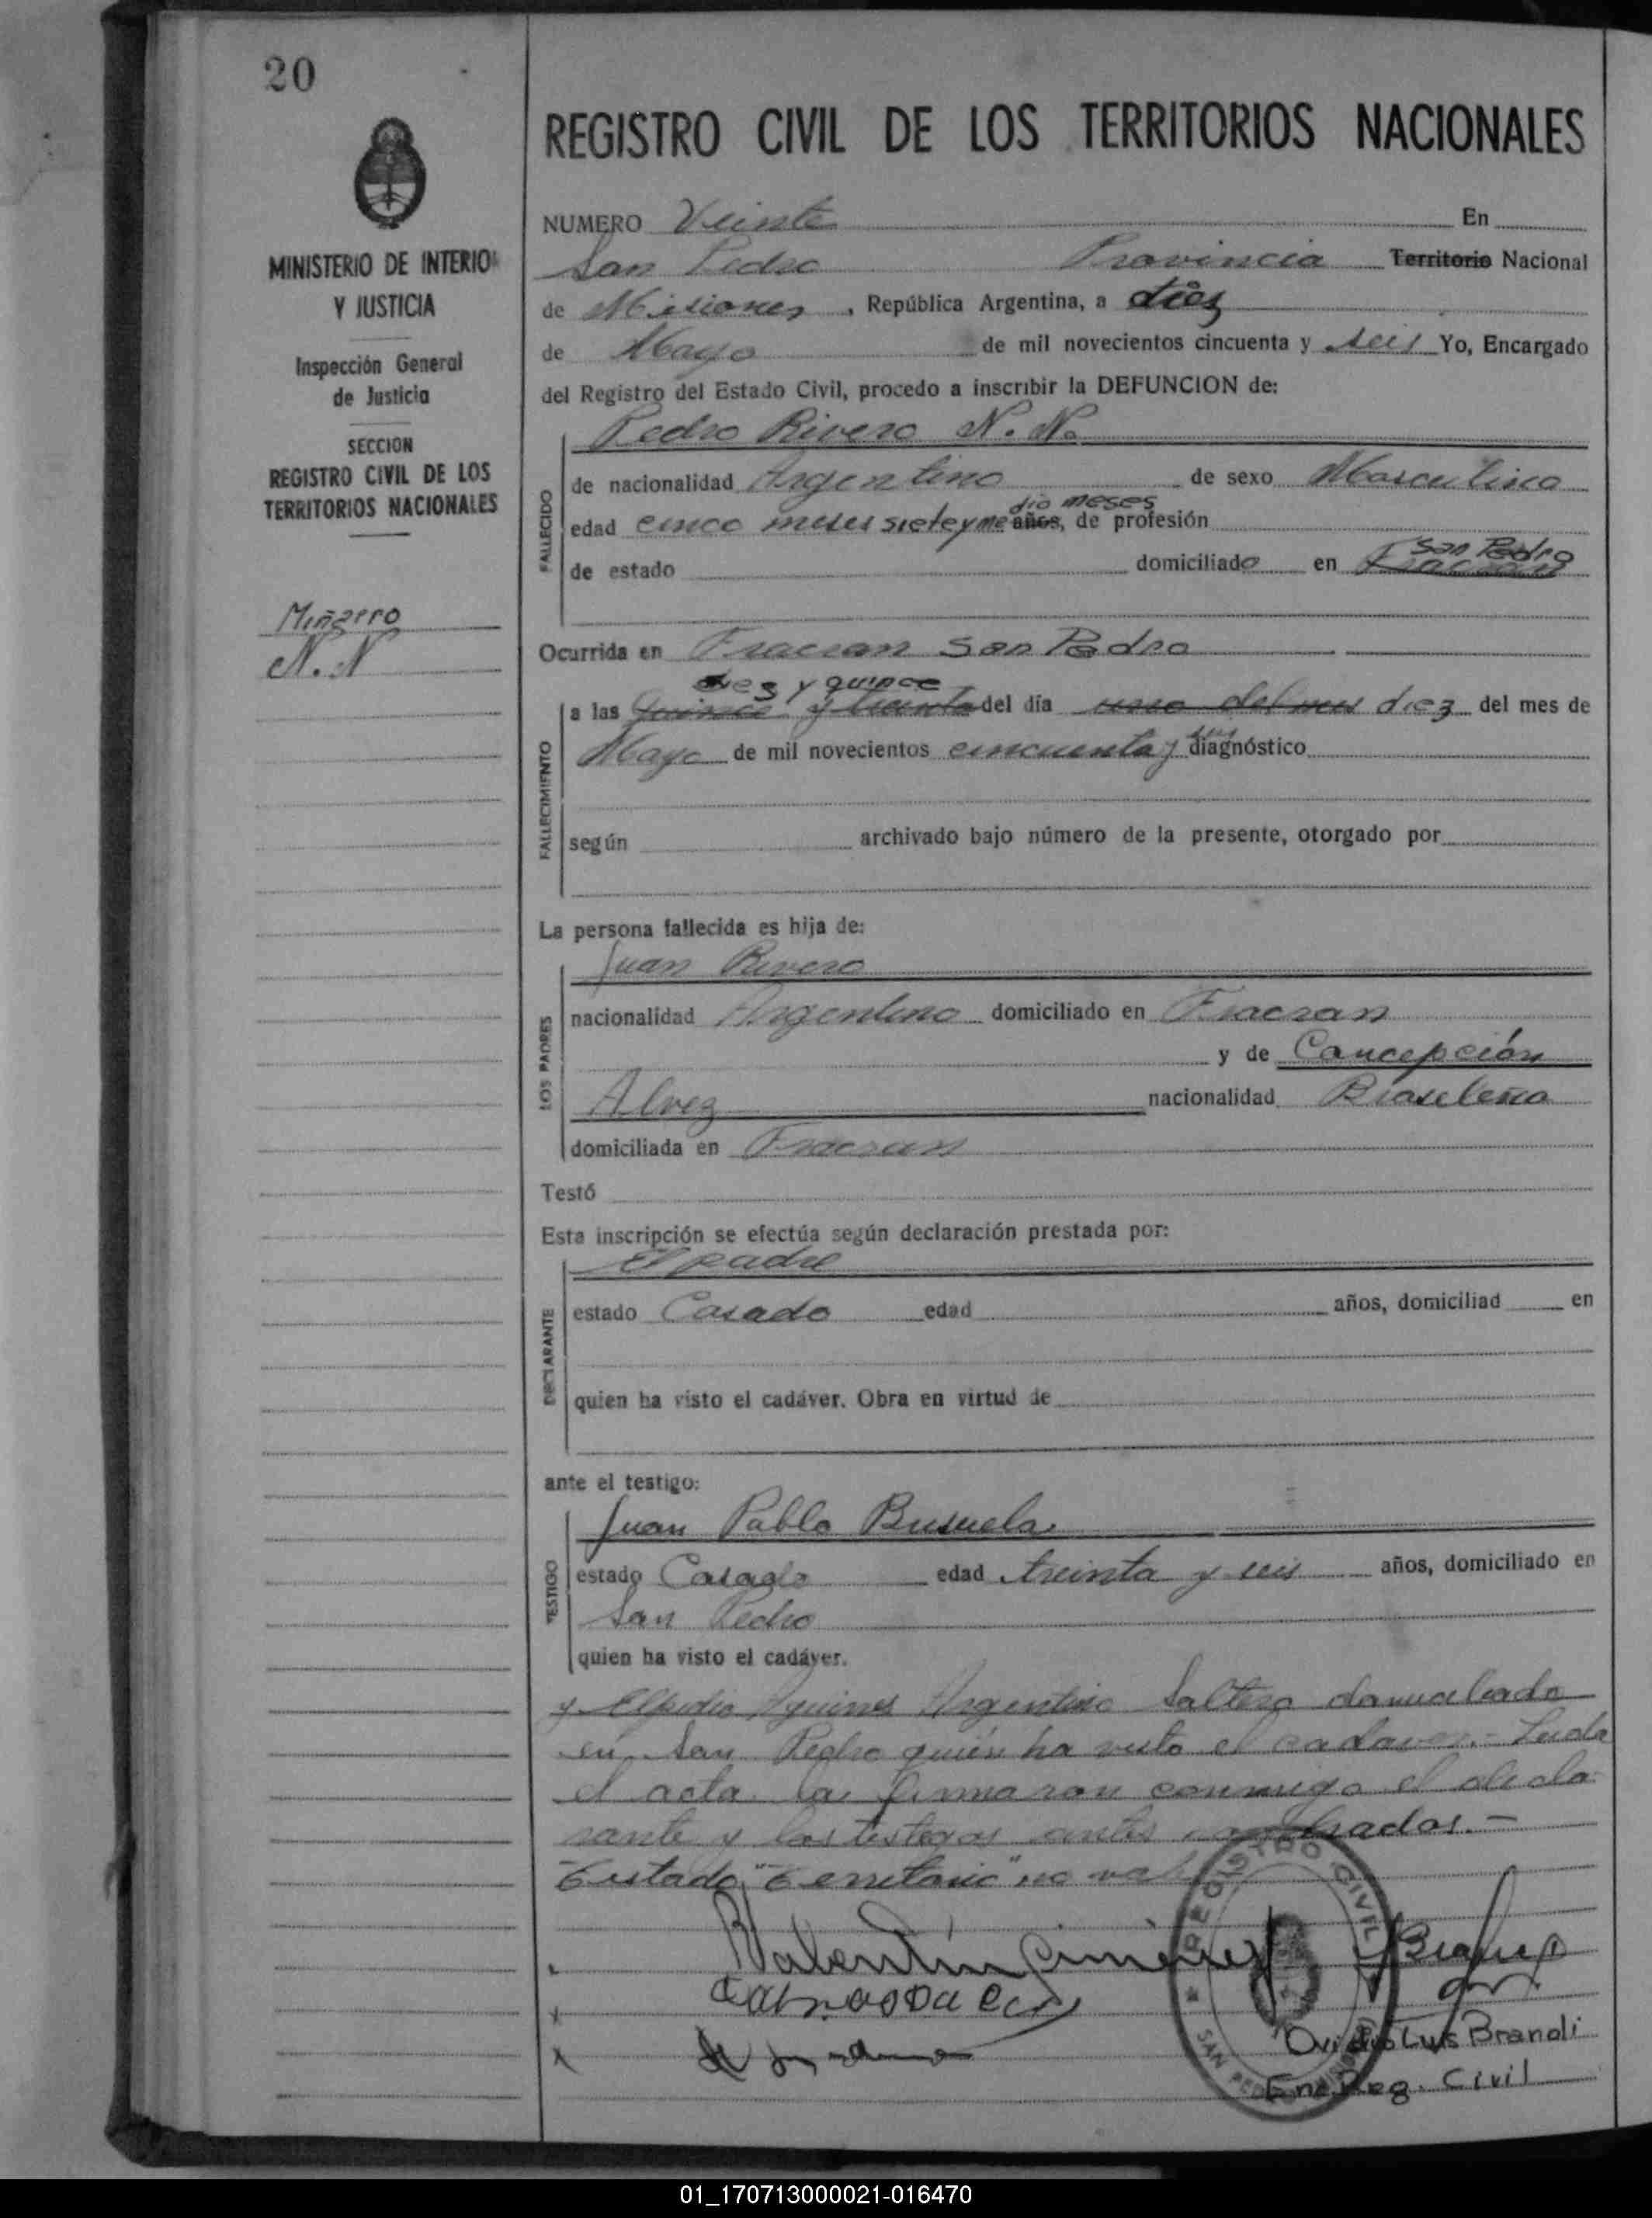 20
MINISTERIO DE INTERIOR
Y JUSTICIA
Inspección General
de Justicia
SECCION
REGISTRO CIVIL DE LOS
TERRITORIOS NACIONALES
Miñarro
N. N
REGISTRO CIVIL DE LOS TERRITORIOS NACIONALES
NUMERO Veinte En
San Pedro Provincia Territorio Nacional
de Misiones, República Argentina, a diez
de Mayo de mil novecientos cincuenta y seis Yo, Encargado
del Registro del Estado Civil, procedo a inscribir la DEFUNCION de:
Pedro Rivero N. N.
FALLECIDO
de nacionalidad Argentino de sexo Masculino
dio meses
edad cinco meses siete y me años, de profesión
San Pedro
de estado domiciliado en Fracran
Ocurrida en Fracran San Pedro
diez y quince
FALLECIMIENTO
a las quince y treinta del día uno del mes diez del mes de
seis
Mayo de mil novecientos cincuenta y diagnóstico
según archivado bajo número de la presente, otorgado por
La persona fallecida es hija de:
Juan Rivero
LOS PADRES
nacionalidad Argentino domiciliado en Fracran
y de Concepción
Alvez nacionalidad Brasileña
domiciliada en Fracran
Testó
Esta inscripción se efectúa según declaración prestada por:
El padre
DECLARANTE
estado Casado edad años, domiciliad en
quien ha visto el cadáver. Obra en virtud de
ante el testigo:
Juan Pablo Busuela
TESTIGO
estado Casado edad treinta y seis años, domiciliado en
San Pedro
quien ha visto el cadáver.
y Elpidio Argentino Soltero domiciliado
en San Pedro quién ha visto el cadaver.- Leida
el acta la firmaron conmigo el decla
rante y los testigos antes nombrados.-
Testado "Territorio" no vale
Valentín Gimenez
REGISTRO CIVIL
SAN PEDRO
Ovidio Luis Brandi
Enc. Reg. Civil
01_170713000021-016470